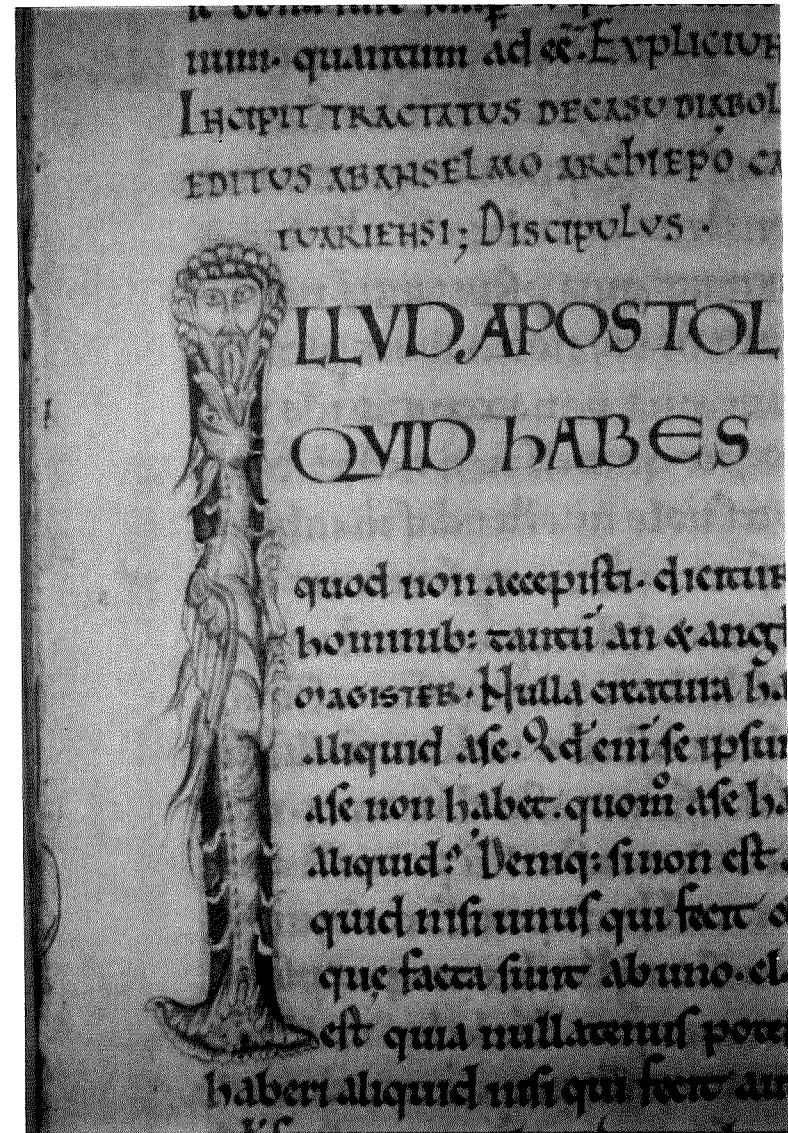 num. quantum ad &c̄. EXPLICIUN
INCIPIT TRACTATUS DECASU DIABOL
EDITUS ABANSELMO ARChIEP̄O CA
TUARIENSI; DISCIPULUS.
LLVD, APOSTOL
QVID hABES
quod non accepisti. dicitur
hominib: tantū an & angl
MAGISTER. Nulla creatura ha
aliquid ase. Qđ eni se ipsum
ase non habet. quom̊ ase ha
aliquid? Deniq: sinon est
quid nisi unus qui fecit
quę facta sunt abuno. el
est quia nullatenus pote
haberi aliquid nisi qui fecit aut